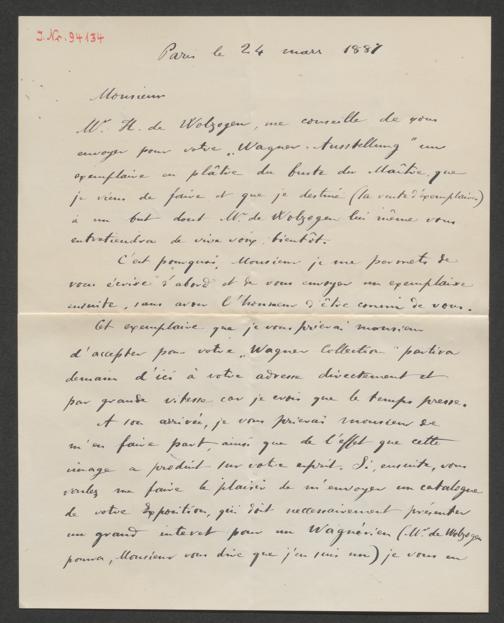 J.Nr. 94134
Paris le 24 mars 1887
Monsieur
Mr. H. de Wolzogen, me conseille de vous
envoyer pour votre „Wagner-Ausstellung" un
exemplaire en plâtre du buste du Maître que
je viens de faire et que je destine (la vente d'exemplaires)
à un but dont Mr. de Wolzogen lui même vous
entretiendra de vive voix, bientôt.
C'est pourquoi, Monsieur je me permets de
vous écrire d'abord et de vous envoyer un exemplaire
ensuite, sans avoir l'honneur d'être connu de vous.
Cet exemplaire que je vous prierai monsieur
d'accepter pour votre „Wagner Collection" partira
demain d'ici à votre adresse directement et
par grande vitesse car je crois que le temps presse.
A son arrivée, je vous prierais monsieur de
m'en faire part, ainsi que de l'effet que cette
image a produit sur votre esprit. Si, ensuite, vous
voulez me faire le plaisir de m'envoyer un catalogue
de votre Exposition, qui doit necessairement présenter
un grand interet pour un Wagnérien (Mr. de Wolzogen
pourra, Monsieur vous dire que j'en suis un) je vous en